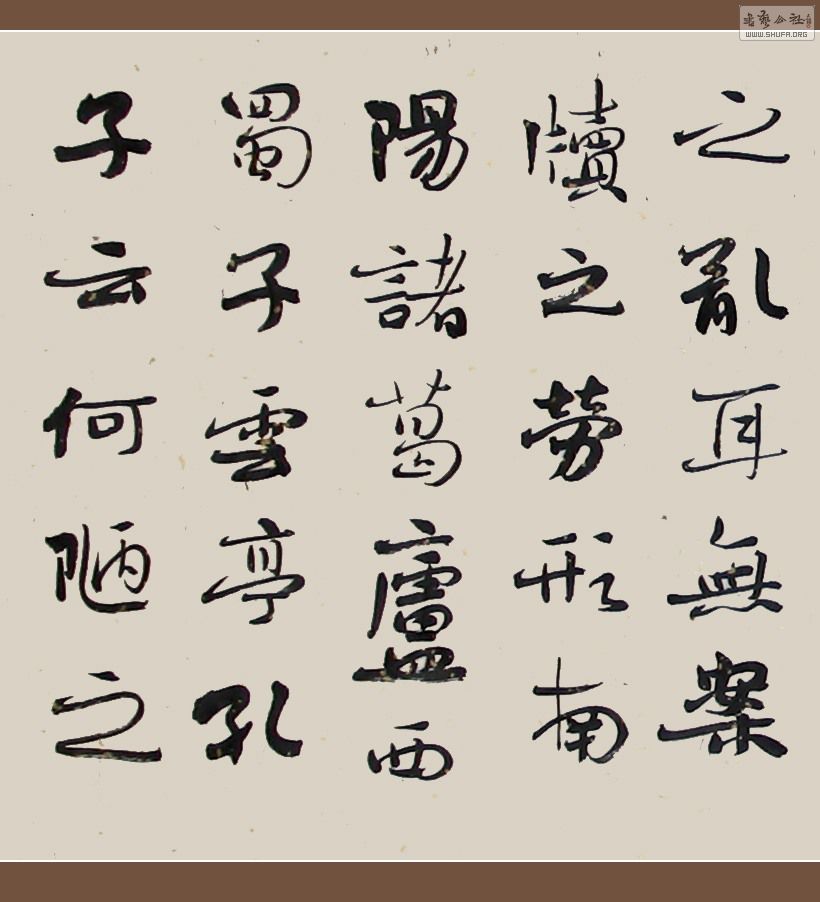 之亂耳無案
牘之勞形南
陽諸葛廬西
蜀子雲亭孔
子云何陋之
WWW.SHUFA.ORG